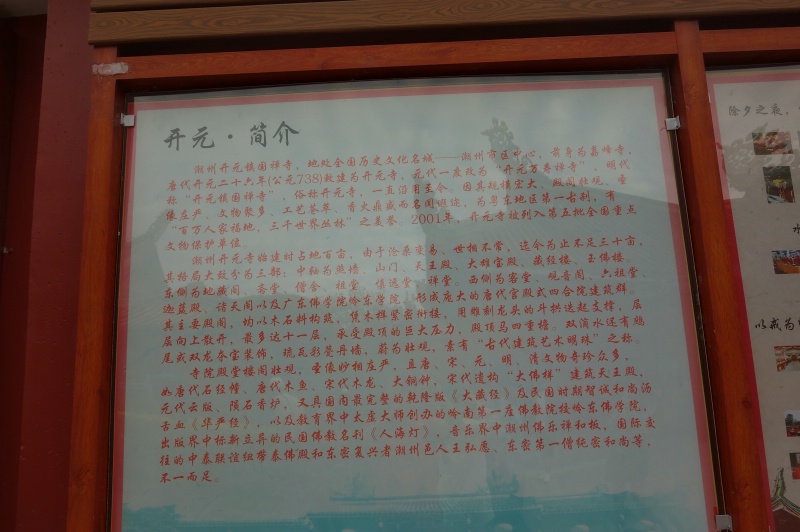 开元·简介
潮州开元镇国禅寺，地处全国历史文化名城——潮州市区中心，前身为荔峰寺，
唐代开元二十六年(公元738)敕建为开元寺，元代一度改为“开元万寿禅寺”，明代
称“开元镇国禅寺”，俗称开元寺，一直沿用至今。因其规模宏大、殿阁壮观、圣
像庄严、文物众多、工艺荟萃、香火鼎盛而名闻遐迩，为粤东地区第一古刹，有
“百万人家福地，三千世界丛林”之美誉。2001年，开元寺被列入第五批全国重点
文物保护单位。
潮州开元寺始建时占地百亩，由于沧桑变易、世相不常，迄今为止不足三十亩，
其格局大致分为三部：中轴为照墙、山门、天王殿、大雄宝殿、藏经楼、玉佛楼。
东侧为地藏阁、斋堂、僧舍、祖堂、慎远堂、禅堂。西侧为客堂、观音阁、六祖堂、
迦蓝殿、诸天阁以及广东佛学院岭东学院，形成庞大的唐代宫殿式四合院建筑群。
其主要殿阁，均以木石料构筑，凭木榫紧密衔接，用雕刻龙头的斗拱迭起支撑，层
层向上散开，最多达十一层，承受殿顶的巨大压力，殿顶马四重檐。双滴水还有鸱
尾或双龙夺宝装饰，琉瓦彩甍丹墙，蔚为壮观，素有“古代建筑艺术明珠”之称。
寺院殿堂楼阁壮观，圣像妙相庄严，且唐、宋、元、明、清文物奇珍众多，
如唐代石经幢、唐代木鱼、宋代木龙、大铜钟，宋代遗构“大佛样”建筑天王殿，
元代云版、陨石香炉，又具国内最完整的乾隆版《大藏经》及民国时期智诚和尚沥
舌血《华严经》，以及教育界中太虚大师创办的岭南第一座佛教院校岭东佛学院，
出版界中标新立异的民国佛教名刊《人海灯》，音乐界中潮州佛乐禅和板，国际交
往的中泰联谊纽带泰佛殿和东密复兴者潮州邑人王弘愿、东密第一僧纯密和尚等，
不一而足。
除夕之夜，
以戒为